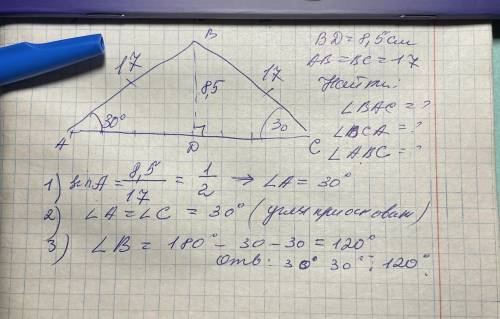 B
17
8,5
17
30°
30
A
D
C
BD = 8,5 см
AB = BC = 17
Найти:
∠BAC = ?
∠BCA = ?
∠ABC = ?
1) sin A = 8,5/17 = 1/2 → ∠A = 30°
2) ∠A = ∠C = 30° (углы при основан)
3) ∠B = 180° - 30 - 30 = 120°
Отв: 30° 30° ; 120°.